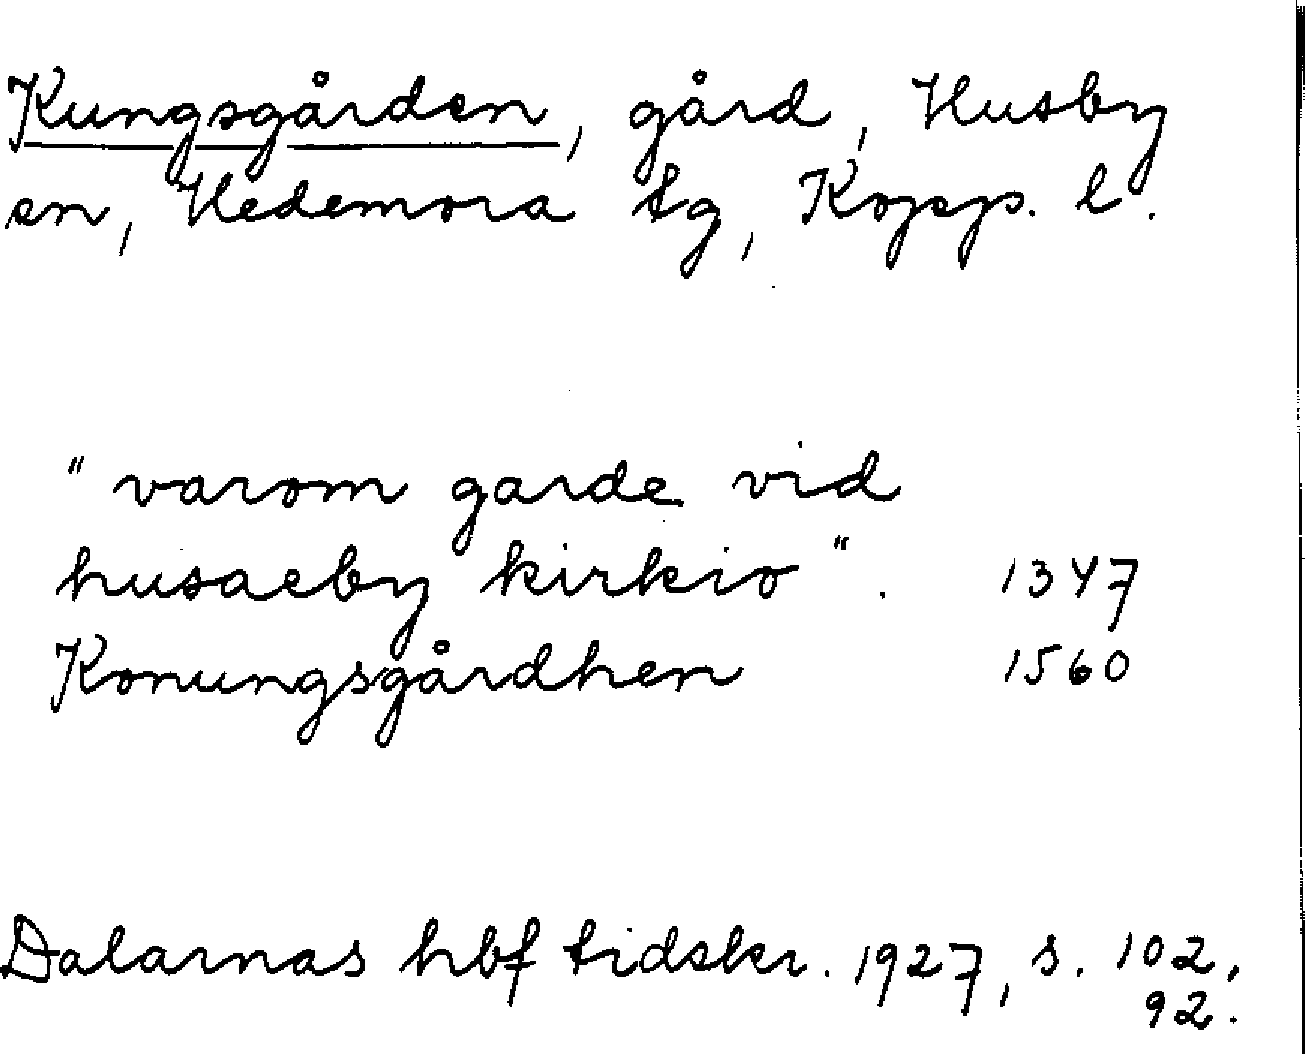 Kungsgården, gård, Husby
sn, Hedemora tg, Kopp. l.
"varom garde vid
husaeby kirkio". 1347
Konungsgårdhen 1560
Dalarnas hbf tidskr. 1927, s. 102,
92.